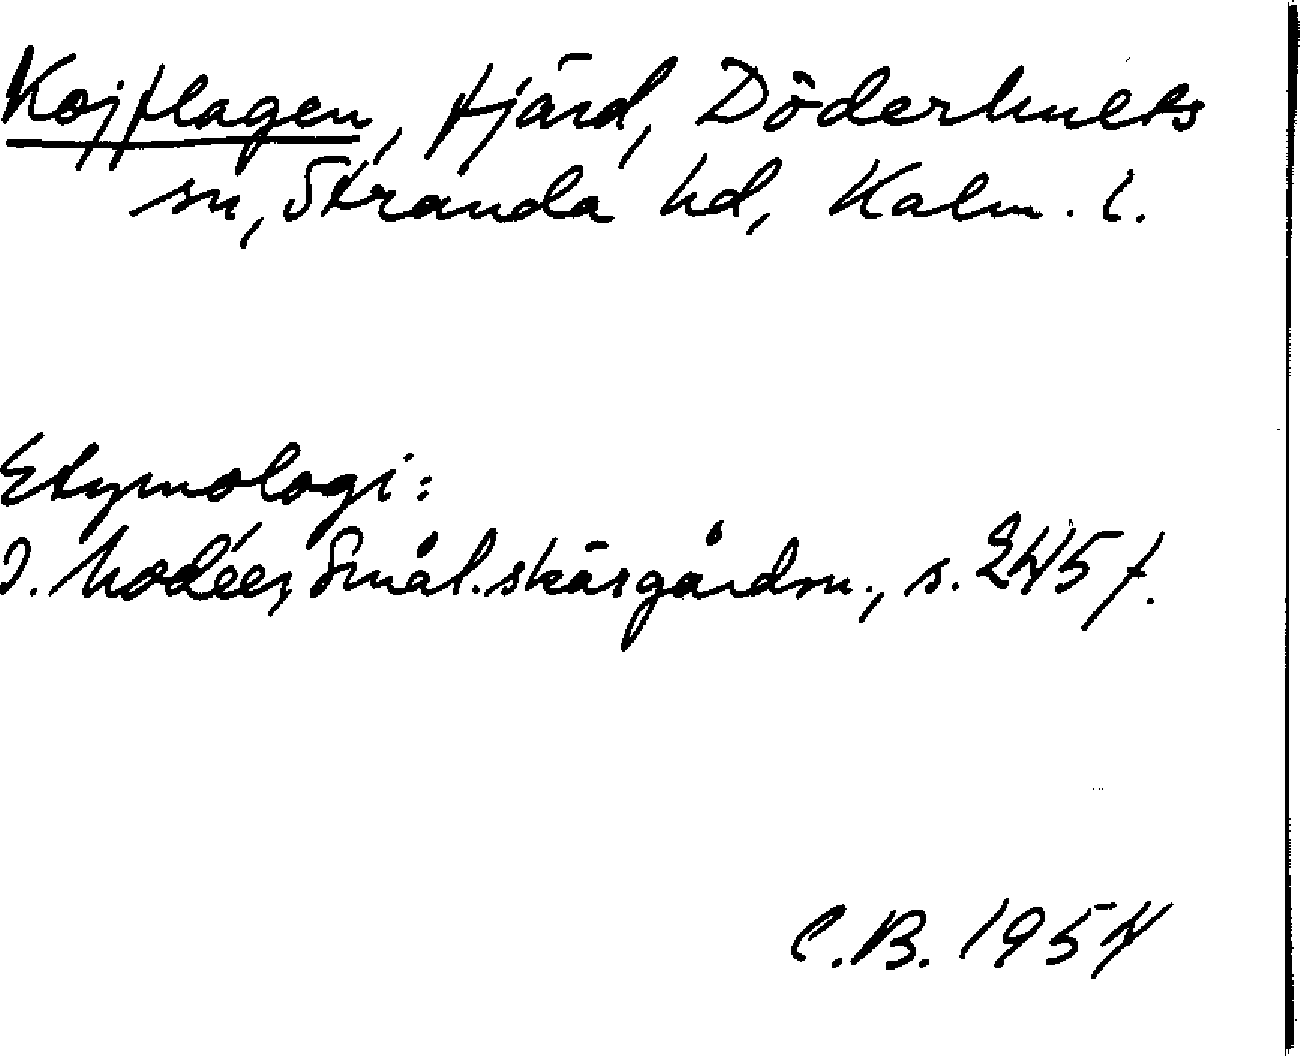 Kojflagen, fjärd, Döderhults
sn, Stranda hd, Kalm. l.
Etymologi:
I. Modéer, Smål. skärgårdsn., s. 245 f.
C.B. 1954